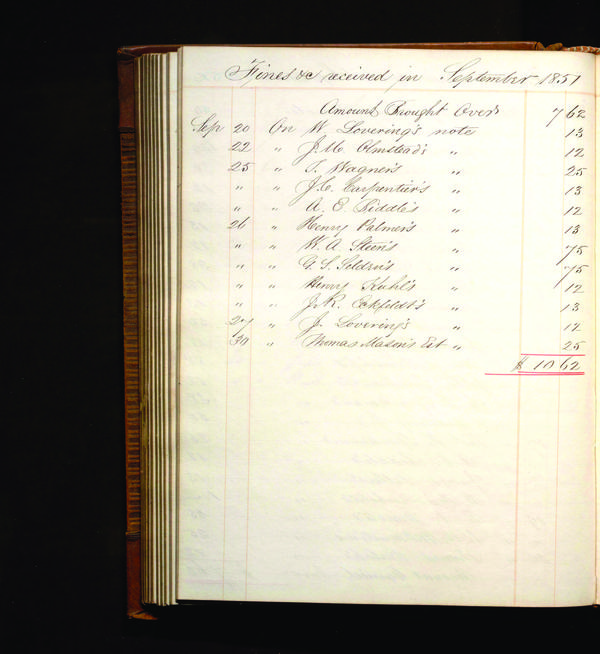 Fines &c received in September 1851
Amount Brought Over 7 62
Sep 20 On W. Lovering's note 13
22 " J. M. Olmstead's " 12
25 " T. Wagner's " 25
" " J. C. Carpentier's " 13
" " A. E. Riddle's " 12
26 " Henry Palmer's " 13
" " W. A. Steen's " 75
" " G. S. " 75
" " Henry Kuhl's " 12
" " J. R. Eckfeldt's " 13
27 " J. Lovering's " 12
30 " Thomas Mason's Est " 25
$ 10 62